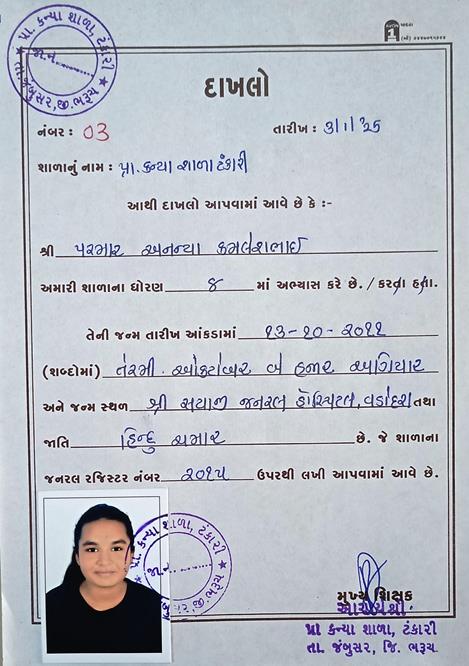 પ્રા. કન્યા શાળા, ટંકારી
જા.નં.
તા. જંબુસર, જી. ભરૂચ
દાખલો
નંબર : 03
તારીખ : ૩/૧/૨૫
શાળાનું નામ : પ્રા. કન્યા શાળા ટંકારી
આથી દાખલો આપવામાં આવે છે કે :-
શ્રી પરમાર અનન્યા કમલેશભાઈ
અમારી શાળાના ધોરણ ૪ માં અભ્યાસ કરે છે. / કરતા હતા.
તેની જન્મ તારીખ આંકડામાં ૧૩-૧૦-૨૦૧૧
(શબ્દોમાં) તેરમી ઓક્ટોબર બે હજાર અગિયાર
અને જન્મ સ્થળ શ્રી સયાજી જનરલ હોસ્પિટલ, વડોદરા તથા
જાતિ હિન્દુ ચમાર છે. જે શાળાના
જનરલ રજિસ્ટર નંબર ૨૦૧૫ ઉપરથી લખી આપવામાં આવે છે.
પ્રા. કન્યા શાળા, ટંકારી
જા.નં.
જી. ભરૂચ
મુખ્ય શિક્ષક
આચાર્યશ્રી
પ્રા કન્યા શાળા, ટંકારી
તા. જંબુસર, જિ. ભરૂચ